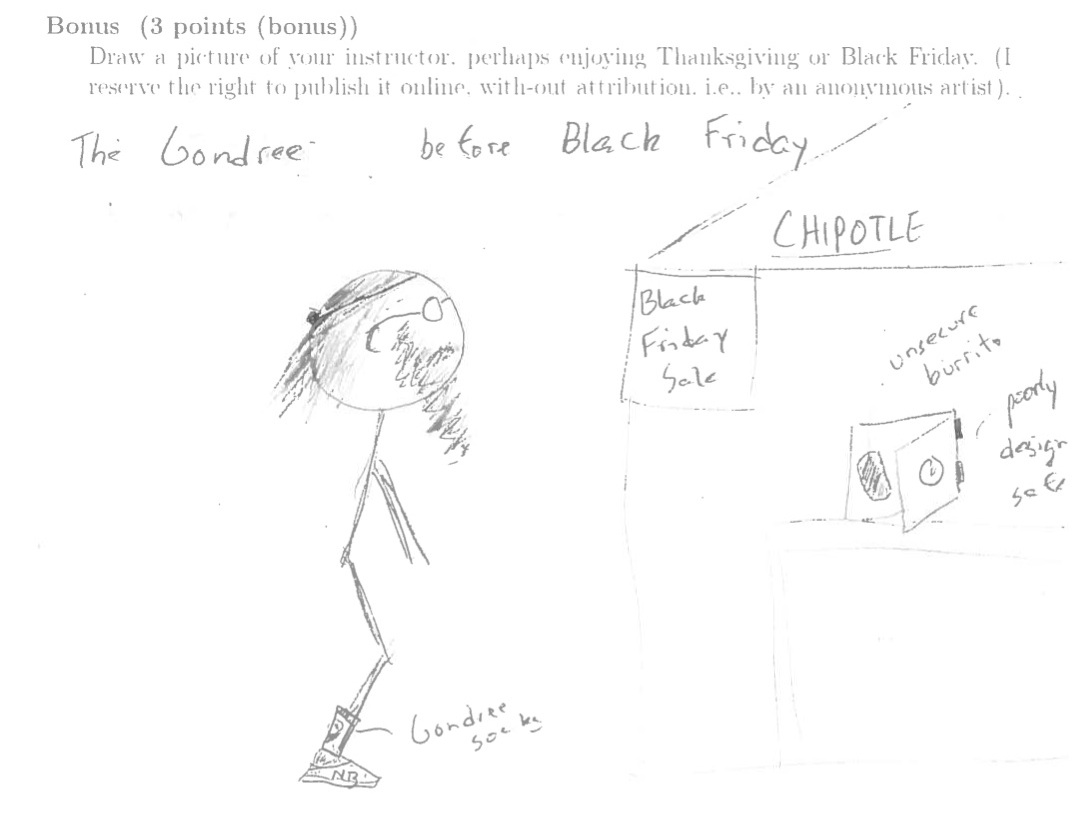 Bonus (3 points (bonus))
Draw a picture of your instructor, perhaps enjoying Thanksgiving or Black Friday. (I
reserve the right to publish it online, with-out attribution, i.e., by an anonymous artist).
The Gondree before Black Friday
CHIPOTLE
Black
Friday
Sale
unsecure
burrito
poorly
design
safe
Gondree
socks
NB